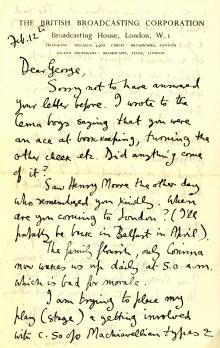 THE BRITISH BROADCASTING CORPORATION
Broadcasting House, London, W.1
TELEPHONE: WELBECK 4468 CABLES: BROADCASTS, LONDON
INLAND TELEGRAMS: BROADCASTS, TELEX, LONDON
Feb. 12
Dear George,
Sorry not to have answered
your letter before. I wrote to the
Cema boys saying that you were
an ace at bookkeeping, turning the
other cheek etc. Did anything come
of it?
Saw Henry Moore the other day
who remembered you kindly. When
are you coming to London? (I'll
probably be back in Belfast in April).
The family flourish, only Corinna
now wakes us up daily at 5.0 a.m.
which is bad for morale.
I am trying to place my
play (stage) & getting involved
with c. 50 Machiavellian types